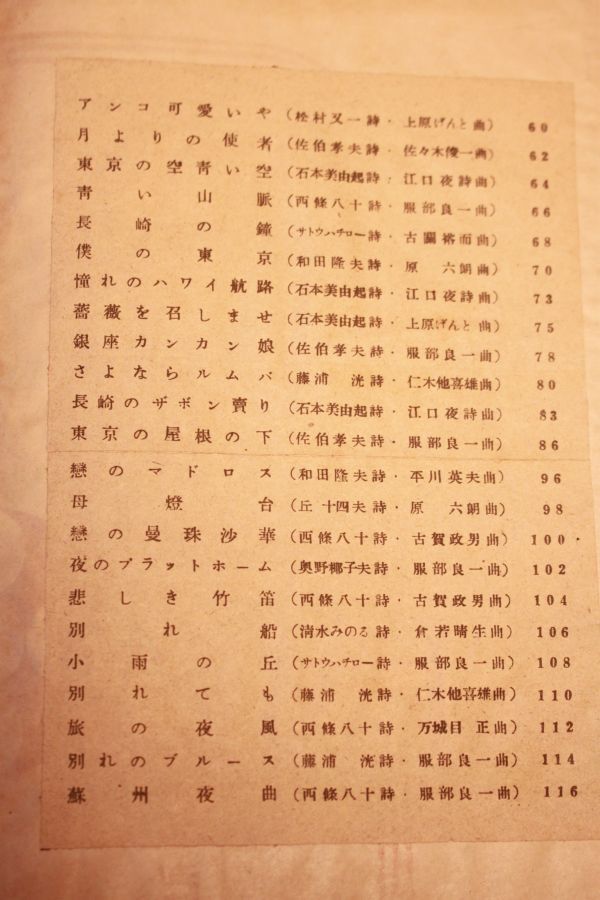 アンコ可愛いや(松村又一詩・上原げんと曲) 60
月よりの使者(佐伯孝夫詩・佐々木俊一曲) 62
東京の空靑い空(石本美由起詩・江口夜詩曲) 64
靑い山脈(西條八十詩・服部良一曲) 66
長崎の鐘(サトウハチロー詩・古關裕而曲) 68
僕の東京(和田隆夫詩・原六朗曲) 70
憧れのハワイ航路(石本美由起詩・江口夜詩曲) 73
薔薇を召しませ(石本美由起詩・上原げんと曲) 75
銀座カンカン娘(佐伯孝夫詩・服部良一曲) 78
さよならルムバ(藤浦洸詩・仁木他喜雄曲) 80
長崎のザボン賣り(石本美由起詩・江口夜詩曲) 83
東京の屋根の下(佐伯孝夫詩・服部良一曲) 86
戀のマドロス(和田隆夫詩・平川英夫曲) 96
母燈台(丘十四夫詩・原六朗曲) 98
戀の曼珠沙華(西條八十詩・古賀政男曲) 100
夜のプラットホーム(奥野椰子夫詩・服部良一曲) 102
悲しき竹笛(西條八十詩・古賀政男曲) 104
別れ船(清水みのる詩・倉若晴生曲) 106
小雨の丘(サトウハチロー詩・服部良一曲) 108
別れても(藤浦洸詩・仁木他喜雄曲) 110
旅の夜風(西條八十詩・万城目正曲) 112
別れのブルース(藤浦洸詩・服部良一曲) 114
蘇州夜曲(西條八十詩・服部良一曲) 116